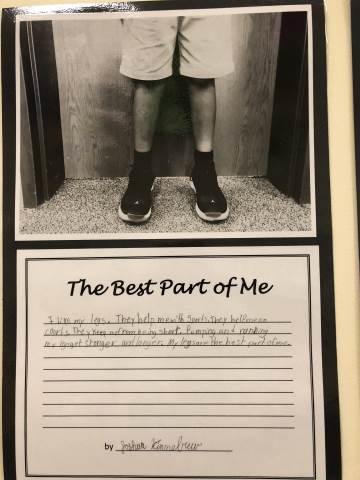 The Best Part of Me
I like my legs. They help me with Sports. They help me on
courts. They keep me from being short. Pumping and running
me legs get stronger and longer. My legs are the best part of me.
by Joshua Kinnebrew